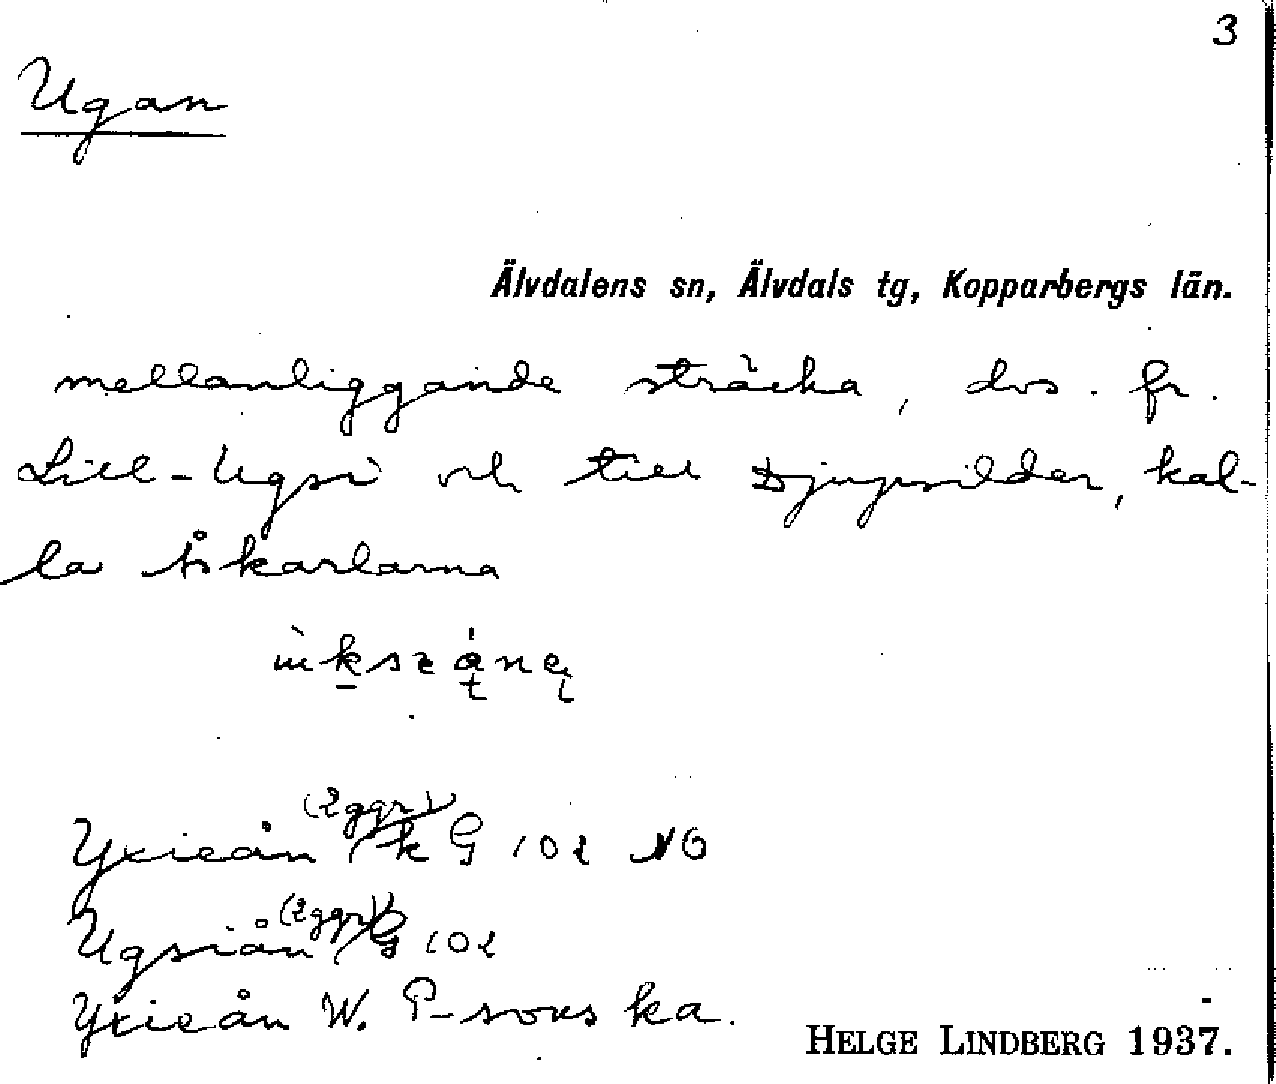 3
Ugan
Älvdalens sn, Älvdals tg, Kopparbergs län.
mellanliggande sträcka, dvs. fr.
Lill-Ugsi och till Djupsilder, kal-
la åkarlarna
(2 ggr)
Yxieån k G 102 NO
(2 ggr)
Ugsiån G 102
Yxieån W. P-sons ka.
HELGE LINDBERG 1937.